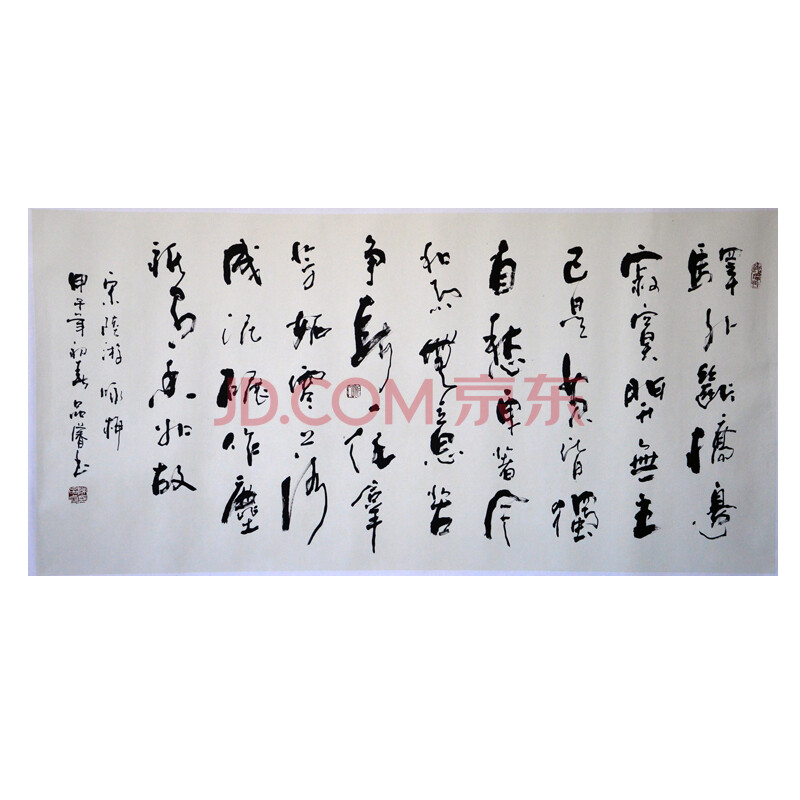 驛外斷橋邊
寂寞開無主
已是黃昏獨
自愁更著風
和雨無意苦
爭春一任羣
芳妬零落
成泥碾作塵
祇有香如故
宋陸游咏梅
甲午年初春品書
JD.COM 京东